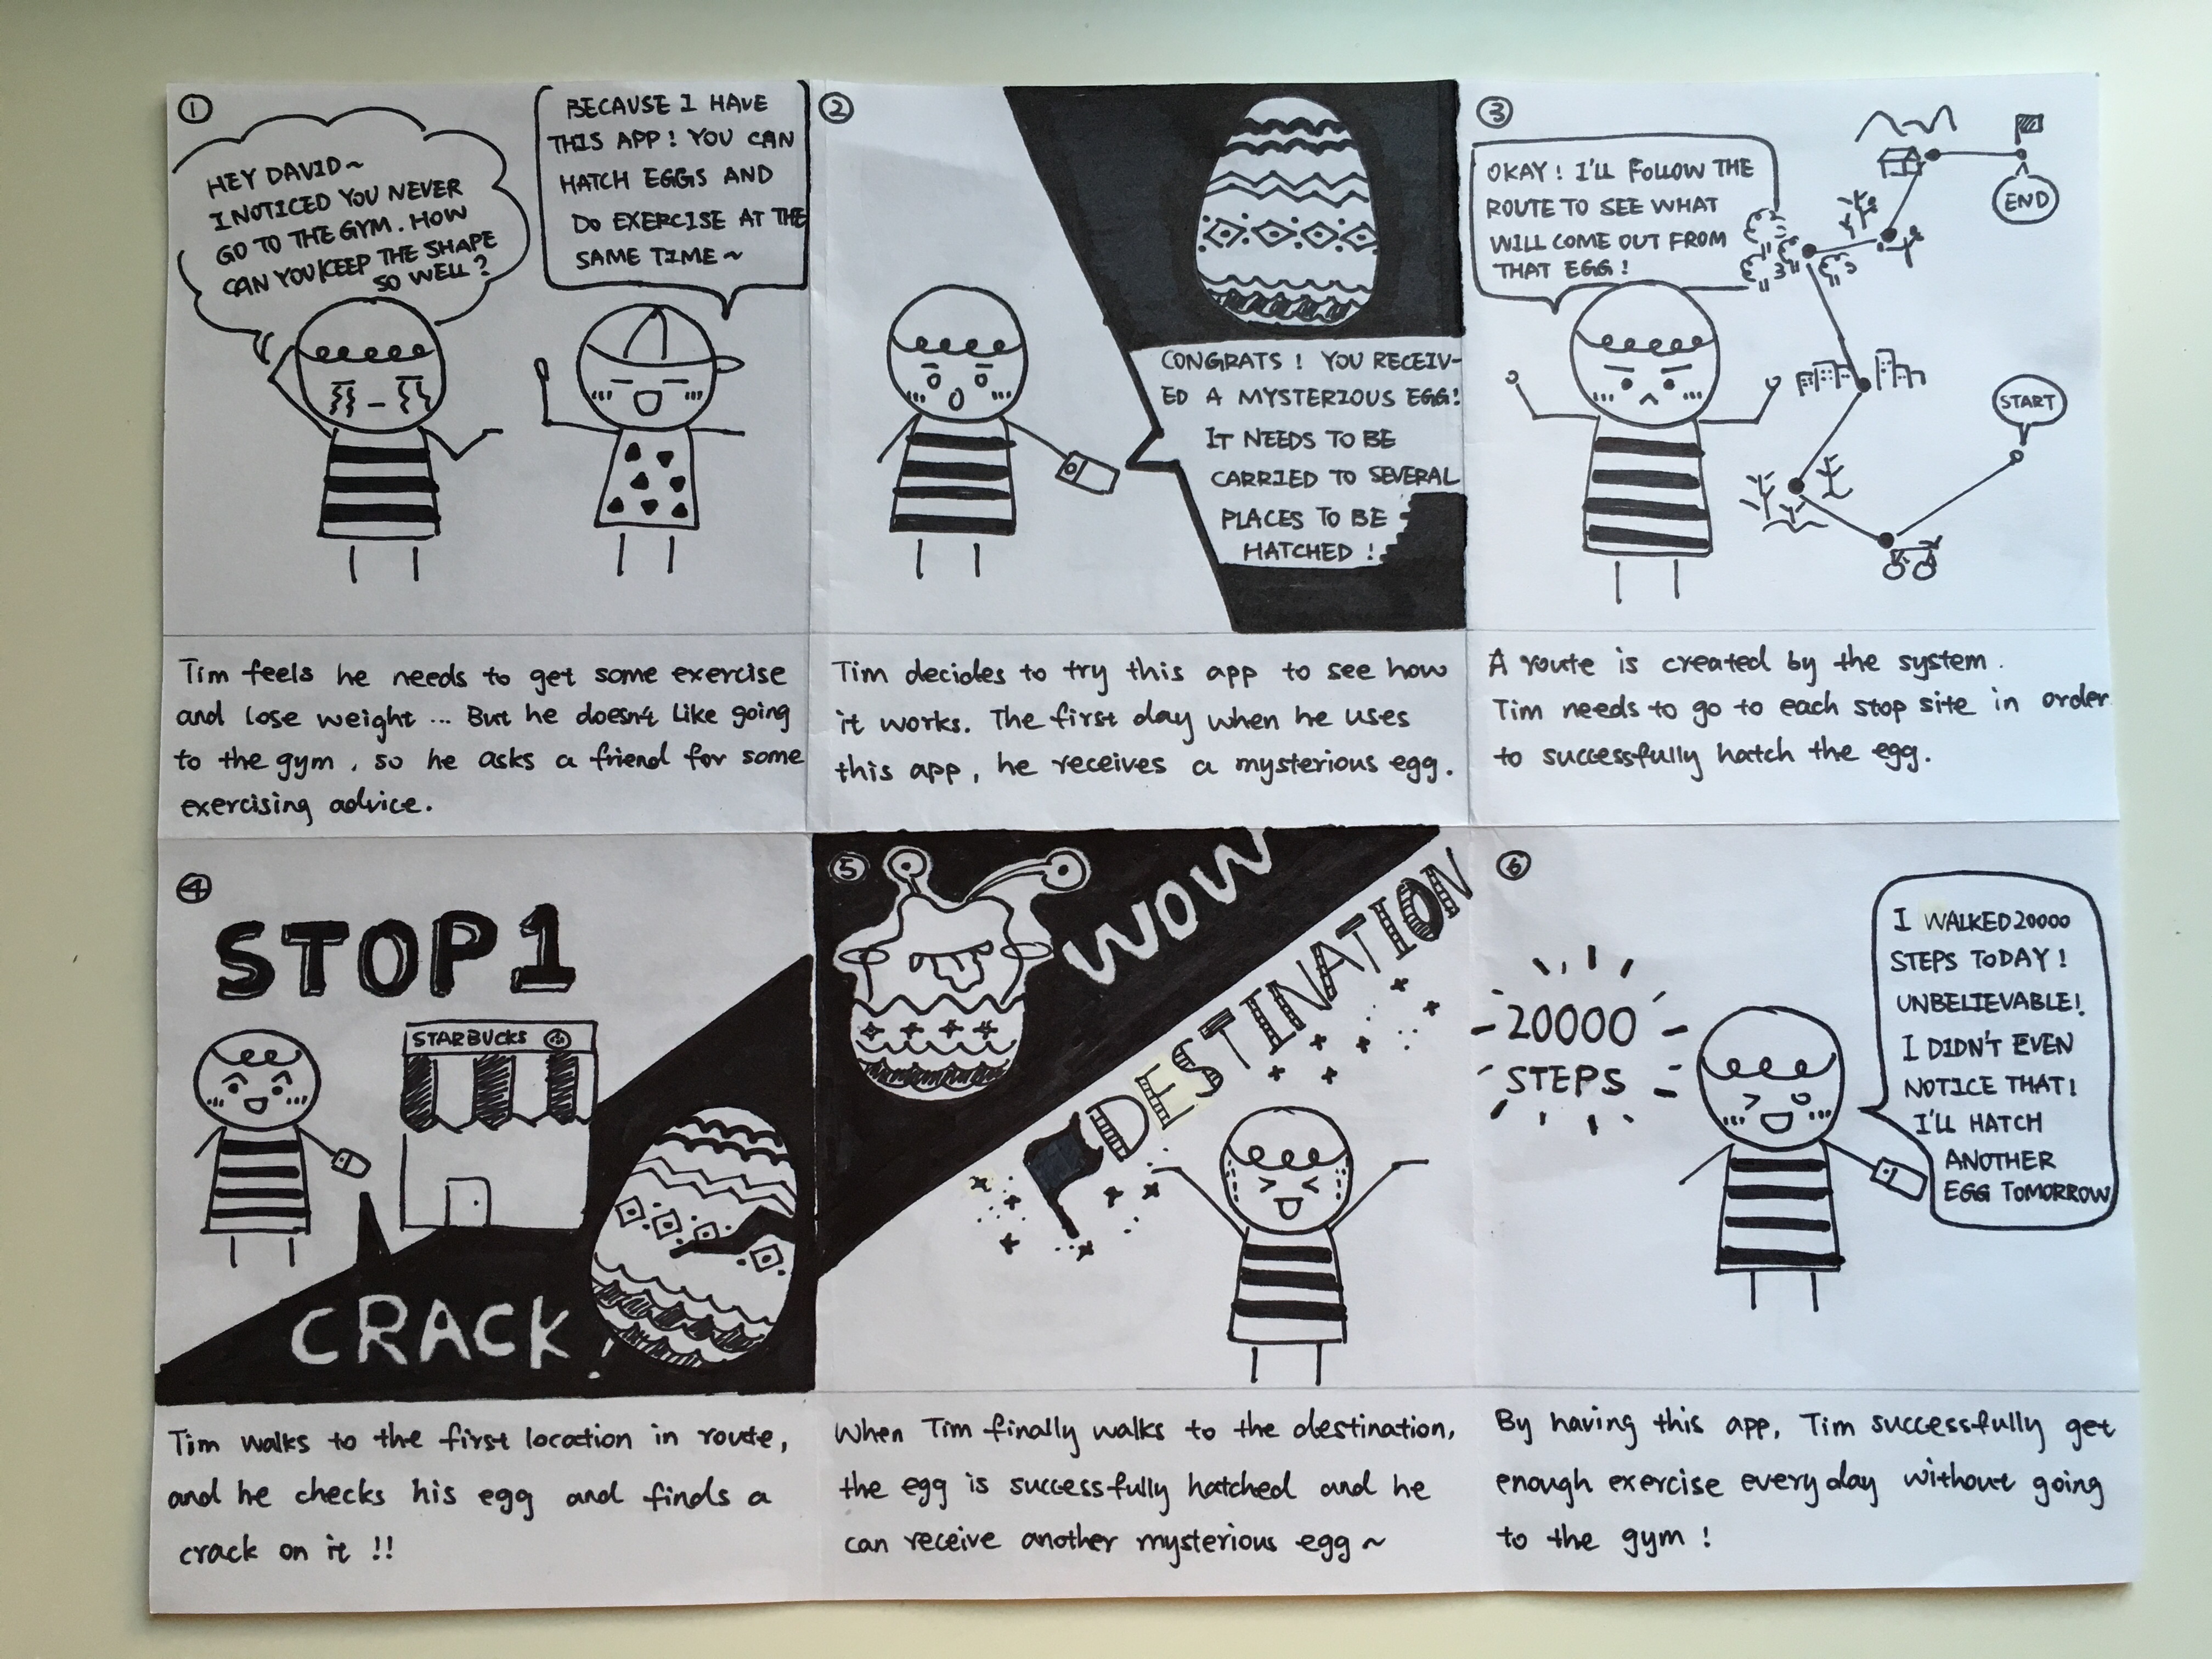 1
HEY DAVID~
I NOTICED YOU NEVER
GO TO THE GYM. HOW
CAN YOU KEEP THE SHAPE
SO WELL?
BECAUSE I HAVE
THIS APP! YOU CAN
HATCH EGGS AND
DO EXERCISE AT THE
SAME TIME~
Tim feels he needs to get some exercise
and lose weight ... But he doesn't like going
to the gym, so he asks a friend for some
exercising advice.
2
CONGRATS! YOU RECEIV-
ED A MYSTERIOUS EGG!
IT NEEDS TO BE
CARRIED TO SEVERAL
PLACES TO BE
HATCHED!
Tim decides to try this app to see how
it works. The first day when he uses
this app, he receives a mysterious egg.
3
OKAY! I'LL FOLLOW THE
ROUTE TO SEE WHAT
WILL COME OUT FROM
THAT EGG!
END
START
A route is created by the system.
Tim needs to go to each stop site in order
to successfully hatch the egg.
4
STOP 1
STARBUCKS
CRACK!
Tim walks to the first location in route,
and he checks his egg and finds a
crack on it !!
5
WOW
DESTINATION
When Tim finally walks to the destination,
the egg is successfully hatched and he
can receive another mysterious egg~
6
20000
STEPS
I WALKED 20000
STEPS TODAY!
UNBELIEVABLE!
I DIDN'T EVEN
NOTICE THAT!
I'LL HATCH
ANOTHER
EGG TOMORROW
By having this app, Tim successfully get
enough exercise every day without going
to the gym!